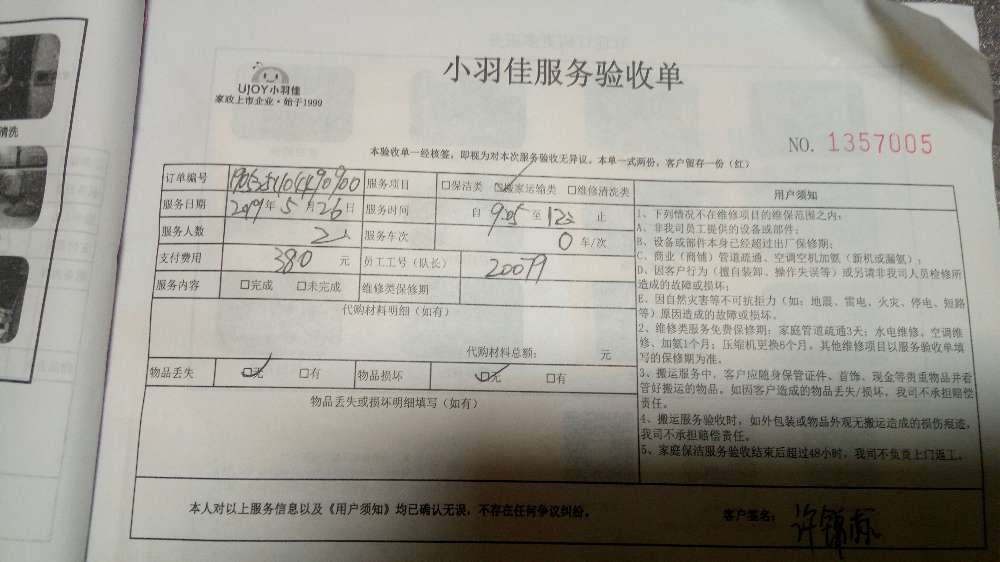 清洗
UJOY小羽佳
家政上市企业·始于1999
小羽佳服务验收单
NO. 1357005
本验收单一经核签，即视为对本次服务验收无异议。本单一式两份，客户留存一份（红）
订单编号 服务项目 □保洁类 ☑搬家运输类 □维修清洗类
服务日期 2019年5月26日 服务时间 自 9:05 至 12 止
服务人数 2人 服务车次 0 车/次
支付费用 380 元 员工工号（队长） 20079
服务内容 □完成 □未完成 维修类保修期
代购材料明细（如有）
代购材料总额： 元
物品丢失 ☑无 □有 物品损坏 ☑无 □有
物品丢失或损坏明细填写（如有）
用户须知
1、下列情况不在维修项目的维保范围之内：
A、非我司员工提供的设备或部件；
B、设备或部件本身已经超过出厂保修期；
C、商业（商铺）管道疏通、空调空机加氨（新机或漏氨）；
D、因客户行为（擅自装卸、操作失误等）或另请非我司人员检修所
造成的故障或损坏；
E、因自然灾害等不可抗拒力（如：地震、雷电、火灾、停电、短路
等）原因造成的故障或损坏。
2、维修类服务免费保修期：家庭管道疏通3天；水电维修、空调维
修、加氨1个月；压缩机更换6个月。其他维修项目以服务验收单填
写的保修期为准。
3、搬运服务中，客户应随身保管证件、首饰、现金等贵重物品并看
管好搬运的物品。如因客户造成的物品丢失/损坏，我司不承担赔偿
责任。
4、搬运服务验收时，如外包装或物品外观无搬运造成的损伤痕迹，
我司不承担赔偿责任。
5、家庭保洁服务验收结束后超过48小时，我司不负责上门返工。
本人对以上服务信息以及《用户须知》均已确认无误，不存在任何争议纠纷。 客户签名：